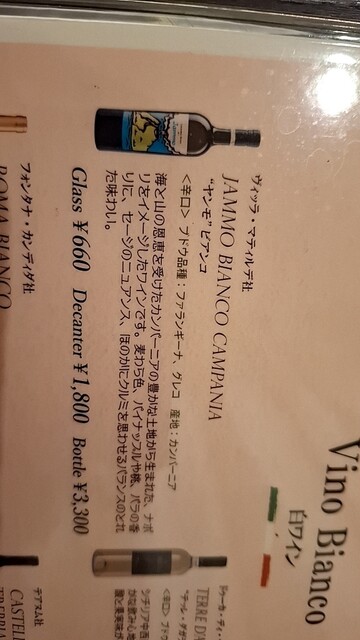 Vino Bianco
白ワイン
ヴィッラ・マティルデ社
JAMMO BIANCO CAMPANIA
“ヤンモ” ビアンコ
<辛口> ブドウ品種：ファランギーナ、グレコ 産地：カンパーニア
海と山の恩恵を受けたカンパーニアの豊かな土地から生まれた、ナポ
リをイメージしたワインです。麦わら色、パイナップルや桃、バラの香
りに、セージのニュアンス、ほのかにクルミを思わせるバランスのとれ
た味わい。
Glass ¥660 Decanter ¥1,800 Bottle ¥3,300
ドゥーカ・ディ・
TERRE D
<辛口> ブド
シチリア中西
フォンタナ・カンディダ社
ROMA BIANCO
テアヌム社
CASTEL